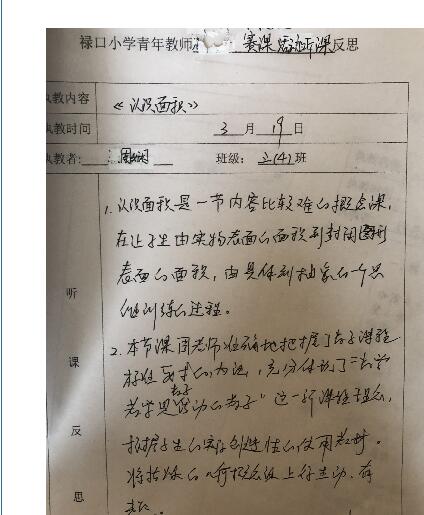 禄口小学青年教师 赛课活动评课反思
执教内容 《认识面积》
执教时间 3月19日
执教者: 周 班级: 三(4)班
听课反思
1. 认识面积是一节内容比较难的概念课,
在让学生由实物表面的面积到封闭图形
表面的面积,由具体到抽象的一个思
维训练的过程。
2. 本节课周老师准确地把握了数学课程
标准 的 ,充分体现了"数学
教学是 活动的教学"这一新课程理念,
根据学生的实际创造性的使用教材。
将抽象的几何概念课上得生动、有